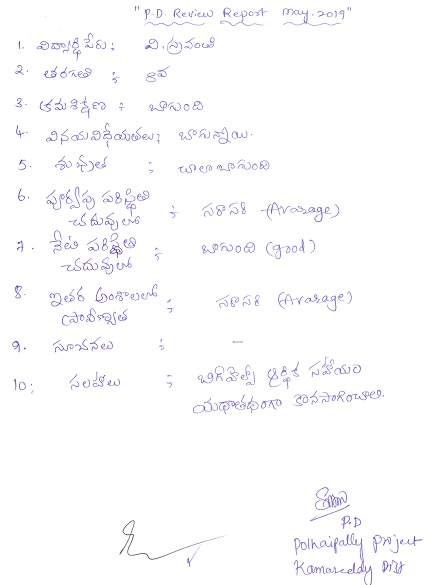 "P.D. Review Report may-2019"
1. విద్యార్థి పేరు : వి. స్రవంతి
2. తరగతి :
3. క్రమశిక్షణ : బాగుంది
4. వినయవిధేయతలు : బాగున్నాయి.
5. శుభ్రత : చాలా బాగుంది
6. పూర్వపు పరిస్థితి
చదువులో : సరాసరి (Avarage)
7. నేటి పరిస్థితి : బాగుంది (good)
చదువులో
8. ఇతర అంశాలలో : సరాసరి (Avarage)
ప్రావీణ్యత
9. సూచనలు : -
10: సలహాలు : బిగ్‌హెల్ప్ ఆర్థిక సహాయం
యథాతథంగా కొనసాగించాలి.
P.D
Polhaipally project
Kamareddy Dist